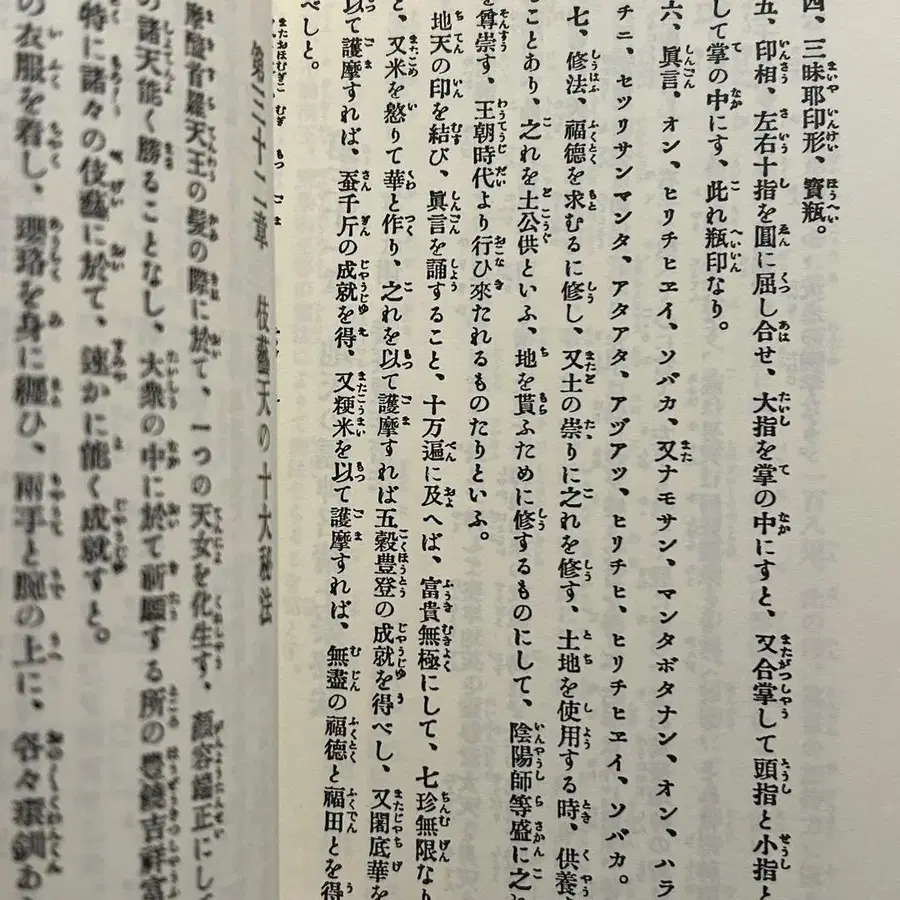 四、三昧耶印形、寶瓶。
五、印相、左右十指を圓に屈し合せ、大指を掌の中にすと、又合掌して頭指と小指と
して掌の中にす、此れ瓶印なり。
六、眞言、オン、ヒリチヒエイ、ソバカ、又ナモサン、マンタボタナン、オン、ハラ
チニ、セツリサンマンタ、アタアタ、アヅアツ、ヒリチヒ、ヒリチヒエイ、ソバカ。
七、修法、福德を求むるに修し、又土の祟りに之れを修す、土地を使用する時、供養
ことあり、之れを土公供といふ、地を貰ふために修するものにして、陰陽師等盛に之
を尊崇す、王朝時代より行ひ來たれるものたりといふ。
地天の印を結び、眞言を誦すること、十万遍に及へば、富貴無極にして、七珍無限なり
と、又米を
りて華と作り、之れを以て護摩すれば五穀豊登の成就を得べし、又闍底華を
以て護摩すれば、蚕千斤の成就を得、又粳米を以て護摩すれば、無盡の福德と福田とを得
べしと。
三十二章 伎藝天の十大秘法
摩醯首羅天王の髪の際に於て、一つの天女を化生す、顔容端正にし
の諸天能く勝ることなし、大衆の中に於て祈願する所の豊饒吉祥富
特に諸々の伎藝に於て、速かに能く成就すと。
の衣服を着し、瓔珞を身に纏ひ、兩手と腕の上に、各々環釧あ